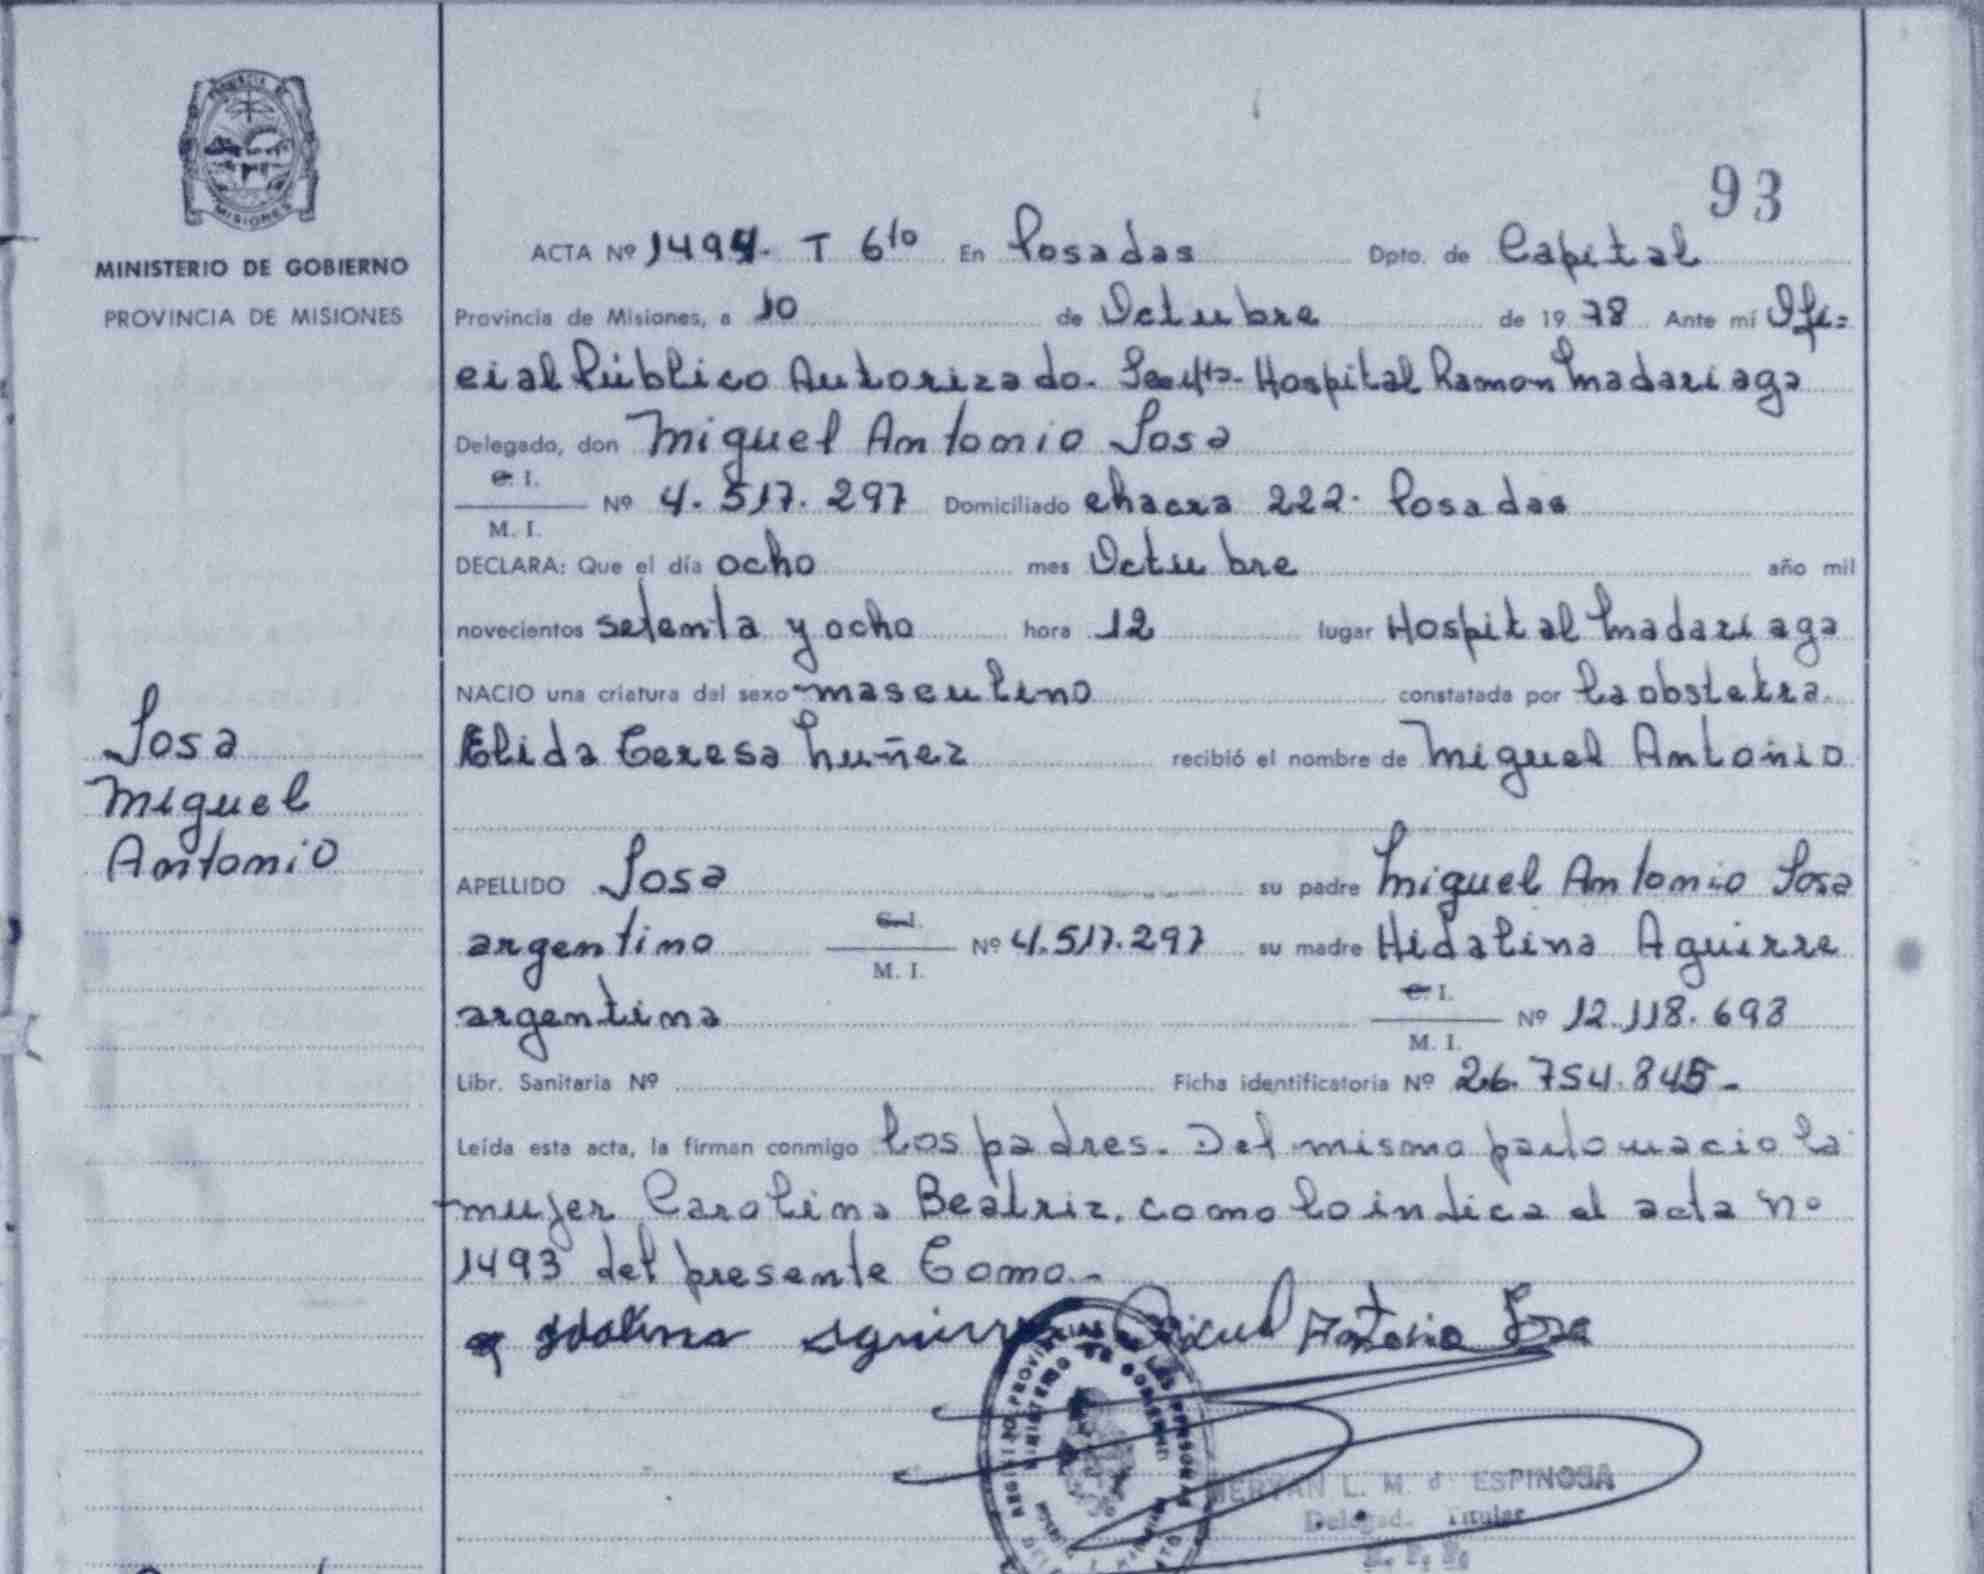 93
PROVINCIA DE
MISIONES
MINISTERIO DE GOBIERNO
PROVINCIA DE MISIONES
Sosa
Miguel
Antonio
ACTA Nº 1494. T 6to En Posadas Dpto. de Capital
Provincia de Misiones, a 10 de Octubre de 1978 Ante mí Ofi-
cial Público Autorizado. Sec 4ta. Hospital Ramon Madariaga
Delegado, don Miguel Antonio Sosa
C. I.
M. I. Nº 4.517.297 Domiciliado chacra 222. Posadas
DECLARA: Que el día ocho mes Octubre año mil
novecientos setenta y ocho hora 12 lugar Hospital Madariaga
NACIO una criatura del sexo masculino constatada por la obstetra.
Elida Teresa Nuñez recibió el nombre de Miguel Antonio
APELLIDO Sosa su padre Miguel Antonio Sosa
argentino C. I. M. I. Nº 4.517.297 su madre Hidalina Aguirre
argentina C. I. M. I. Nº 12.118.693
Libr. Sanitaria Nº Ficha identificatoria Nº 26.754.845-
Leída esta acta, la firman conmigo los padres. Del mismo parto nacio la
mujer Carolina Beatriz, como lo indica el acta Nº
1493 del presente Tomo.-
Idalina Aguirre Miguel Antonio Sosa
L. M. d ESPINOSA
Delegad. Titular